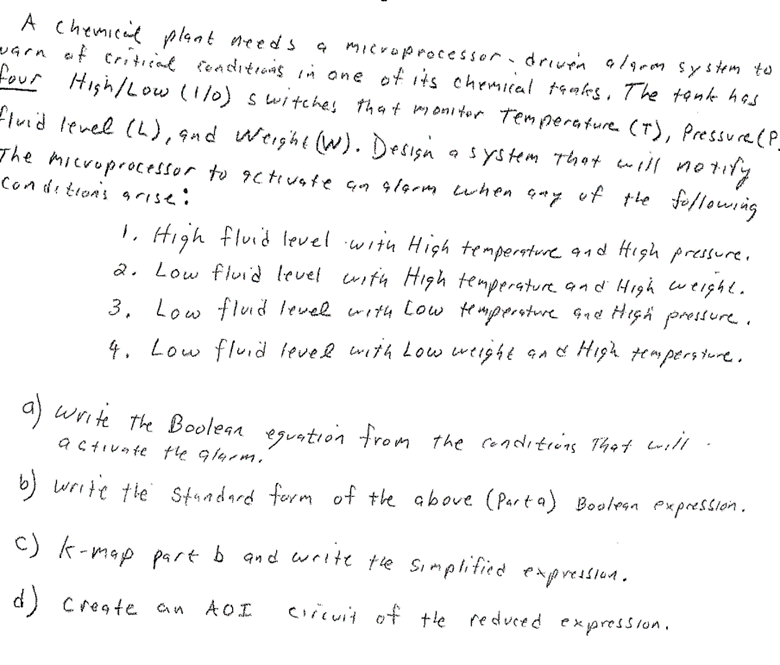 A chemical plant needs a microprocessor-driven alarm system to
warn of critical conditions in one of its chemical tanks. The tank has
four High/Low (1/0) switches that monitor Temperature (T), Pressure (P
fluid level (L), and Weight (W). Design a system that will notify
The microprocessor to activate an alarm when any of the following
conditions arise:
1. High fluid level with High temperature and High pressure.
2. Low fluid level with High temperature and High weight.
3. Low fluid level with Low temperature and High pressure.
4. Low fluid level with Low weight and High temperature.
a) Write the Boolean equation from the conditions That will
activate the alarm.
b) write the standard form of the above (Part a) Boolean expression.
c) K-map part b and write the simplified expression.
d) Create an AOI circuit of the reduced expression.